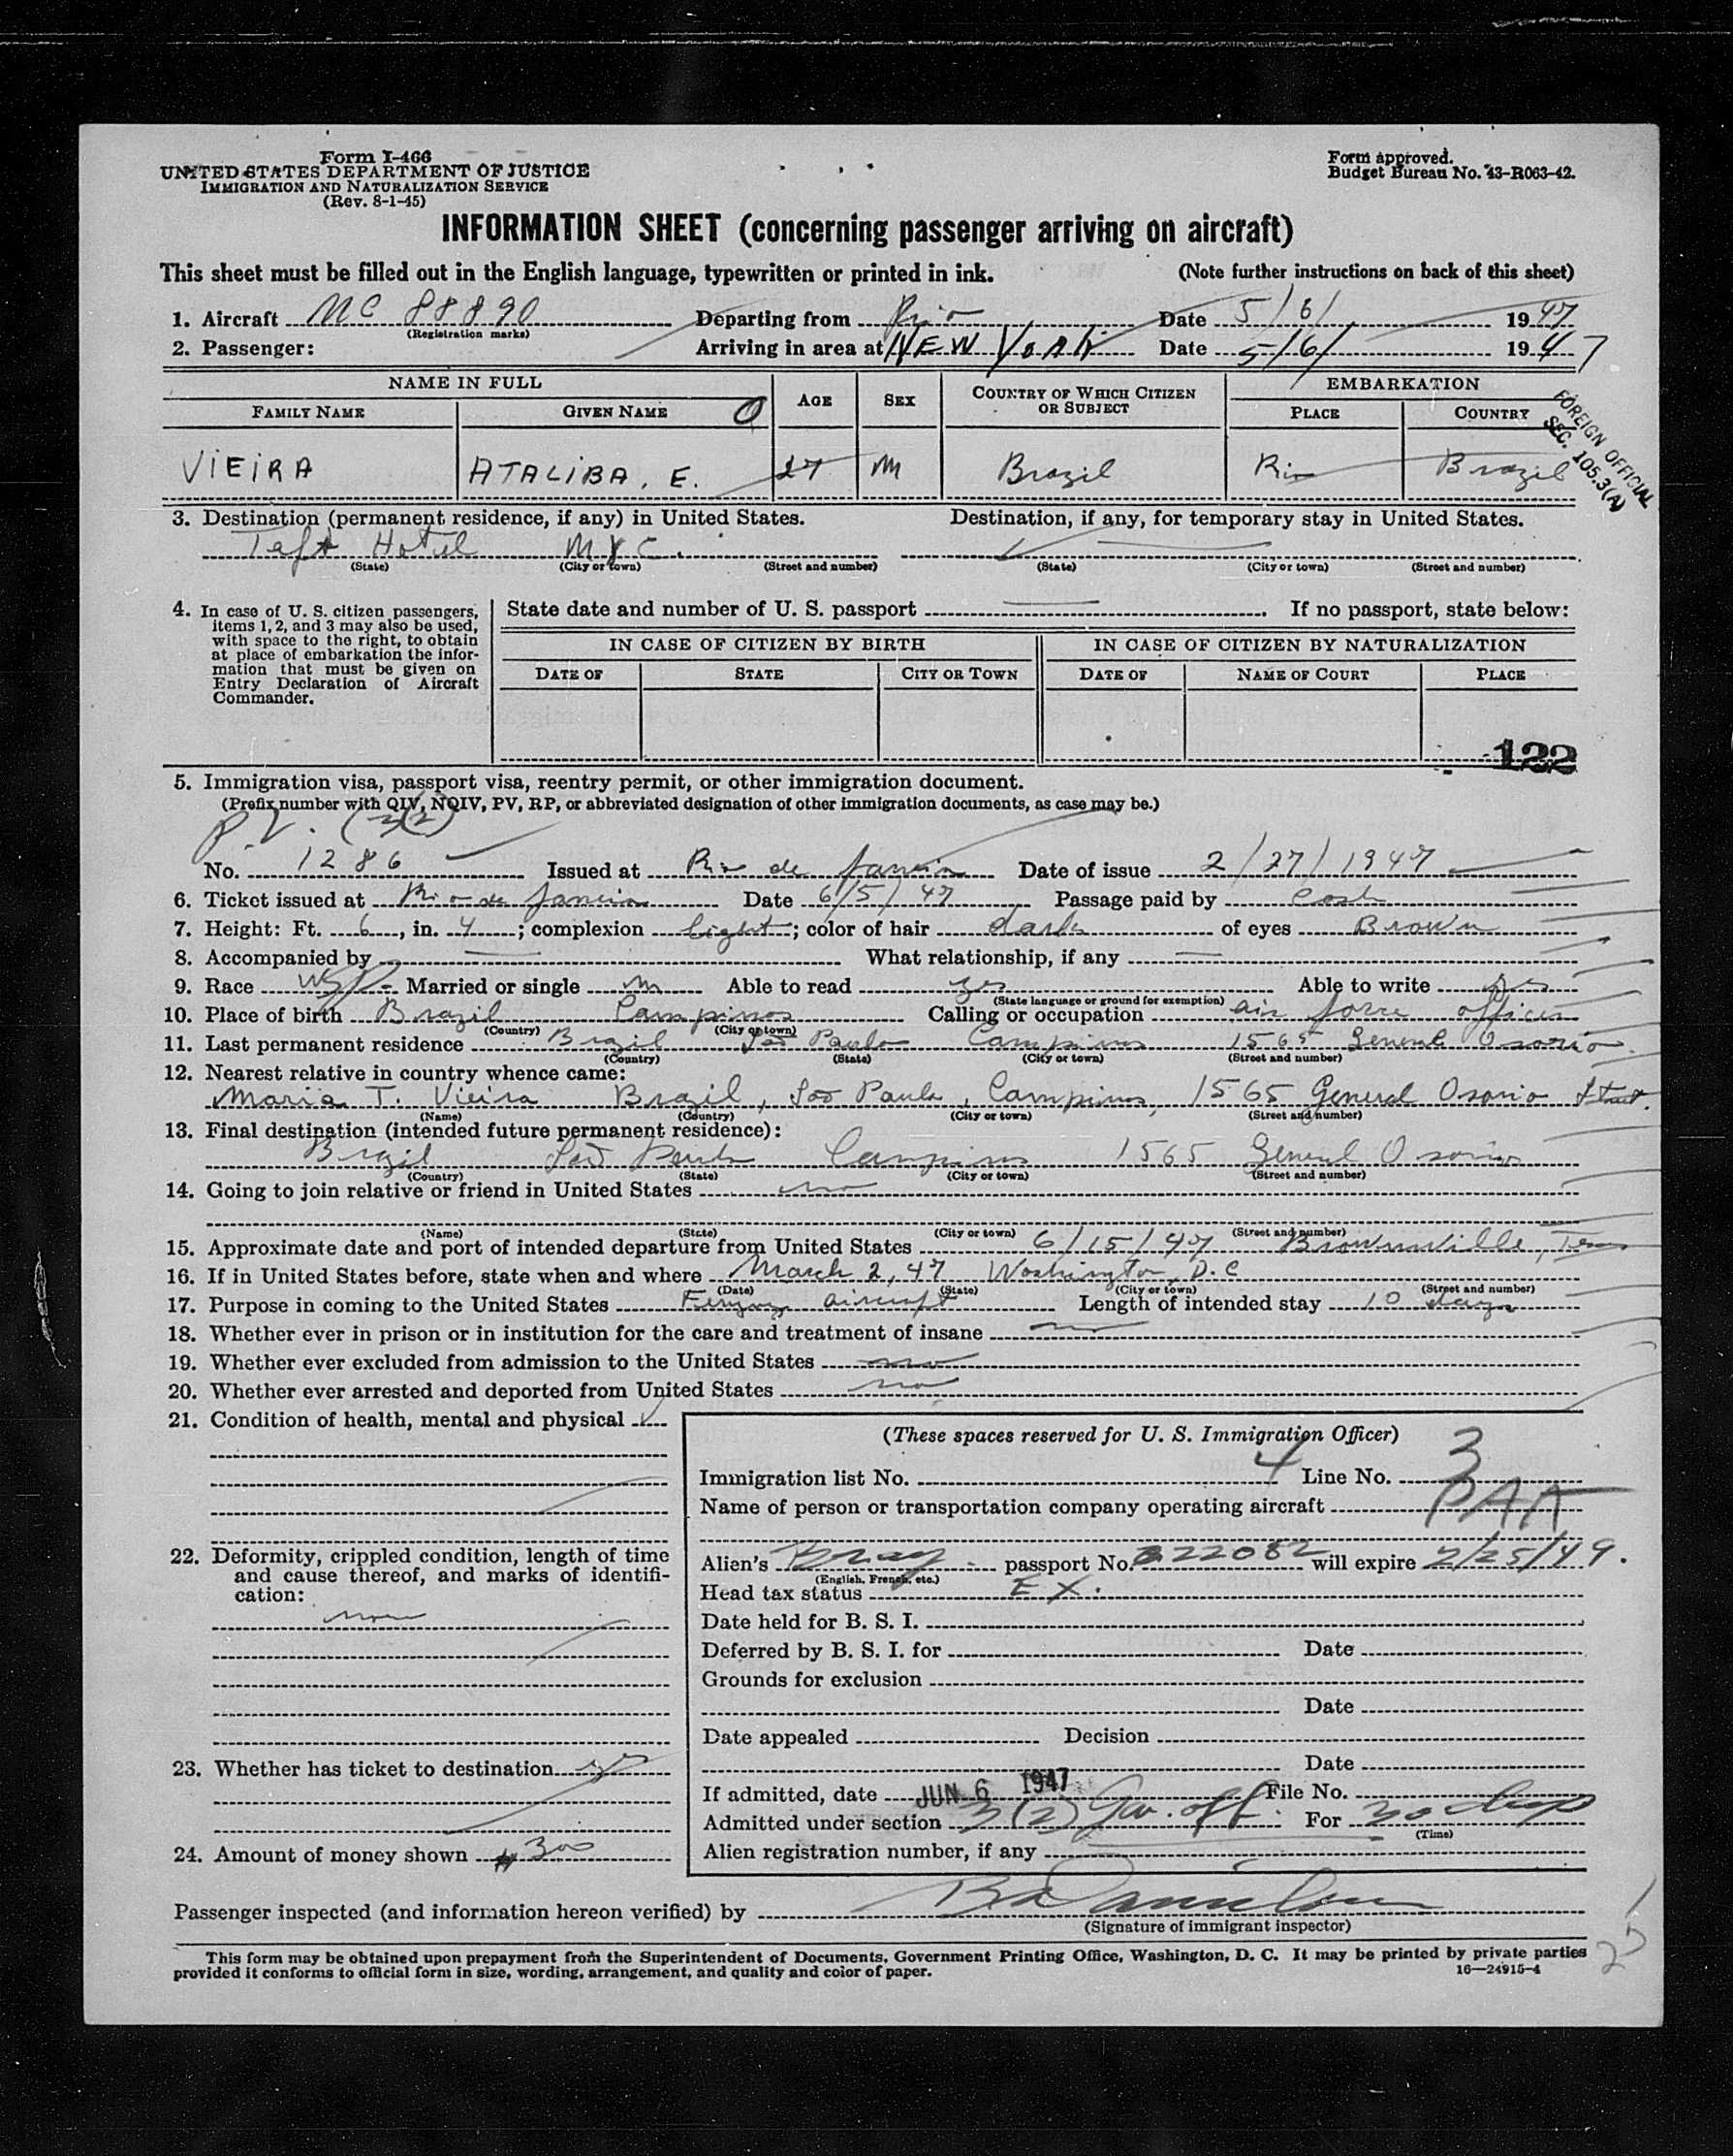 Form I-466
UNITED STATES DEPARTMENT OF JUSTICE
IMMIGRATION AND NATURALIZATION SERVICE
(Rev. 8-1-45)
Form approved.
Budget Bureau No. 43-R063-42.
INFORMATION SHEET (concerning passenger arriving on aircraft)
This sheet must be filled out in the English language, typewritten or printed in ink. (Note further instructions on back of this sheet)
1. Aircraft NC 88890 Departing from Rio Date 5/6/ 1947
(Registration marks)
2. Passenger: Arriving in area at NEW YORK Date 5/6/ 1947
NAME IN FULL AGE SEX COUNTRY OF WHICH CITIZEN OR SUBJECT EMBARKATION
FAMILY NAME GIVEN NAME PLACE COUNTRY
VIEIRA ATALIBA. E. 27 M Brazil Rio Brazil
FOREIGN OFFICIAL
SEC. 105.3(A)
3. Destination (permanent residence, if any) in United States. Destination, if any, for temporary stay in United States.
Taft Hotel NYC.
(State) (City or town) (Street and number) (State) (City or town) (Street and number)
4. In case of U. S. citizen passengers, items 1, 2, and 3 may also be used, with space to the right, to obtain at place of embarkation the information that must be given on Entry Declaration of Aircraft Commander.
State date and number of U. S. passport If no passport, state below:
IN CASE OF CITIZEN BY BIRTH IN CASE OF CITIZEN BY NATURALIZATION
DATE OF STATE CITY OR TOWN DATE OF NAME OF COURT PLACE
122
5. Immigration visa, passport visa, reentry permit, or other immigration document.
(Prefix number with QIV, NQIV, PV, RP, or abbreviated designation of other immigration documents, as case may be.)
P.V. (3(2)
No. 1286 Issued at Rio de Janeiro Date of issue 2/27/1947
6. Ticket issued at Rio de Janeiro Date 6/5/47 Passage paid by
7. Height: Ft. 6, in. 4; complexion light; color of hair dark of eyes Brown
8. Accompanied by What relationship, if any
9. Race Married or single m Able to read yes Able to write yes
(State language or ground for exemption)
10. Place of birth Brazil Campinas Calling or occupation air force officer
(Country) (City or town)
11. Last permanent residence Brazil São Paulo Campinas 1565 General Osorio
(Country) (State) (City or town) (Street and number)
12. Nearest relative in country whence came:
Maria T. Vieira Brazil, São Paulo, Campinas, 1565 General Osorio Street.
(Name) (Country) (City or town) (Street and number)
13. Final destination (intended future permanent residence):
Brazil São Paulo Campinas 1565 General Osorio
(Country) (State) (City or town) (Street and number)
14. Going to join relative or friend in United States no
(Name) (State) (City or town) (Street and number)
15. Approximate date and port of intended departure from United States 6/15/47 Brownsville, Texas
16. If in United States before, state when and where March 2, 47 Washington, D.C
(Date) (State) (City or town) (Street and number)
17. Purpose in coming to the United States Ferrying aircraft Length of intended stay 10 days
18. Whether ever in prison or in institution for the care and treatment of insane no
19. Whether ever excluded from admission to the United States no
20. Whether ever arrested and deported from United States no
21. Condition of health, mental and physical
22. Deformity, crippled condition, length of time and cause thereof, and marks of identification:
none
23. Whether has ticket to destination yes
24. Amount of money shown $300
(These spaces reserved for U. S. Immigration Officer)
Immigration list No. 4 Line No. 3
Name of person or transportation company operating aircraft PAA
Alien's Braz. passport No. 22082 will expire 2/25/49.
(English, French, etc.)
Head tax status EX.
Date held for B. S. I.
Deferred by B. S. I. for Date
Grounds for exclusion
Date
Date appealed Decision
Date
If admitted, date JUN 6 1947 File No.
Admitted under section 3(2) Gov. off. For 30 days
(Time)
Alien registration number, if any
Passenger inspected (and information hereon verified) by
(Signature of immigrant inspector)
This form may be obtained upon prepayment from the Superintendent of Documents, Government Printing Office, Washington, D. C. It may be printed by private parties
provided it conforms to official form in size, wording, arrangement, and quality and color of paper. 16—24915-4